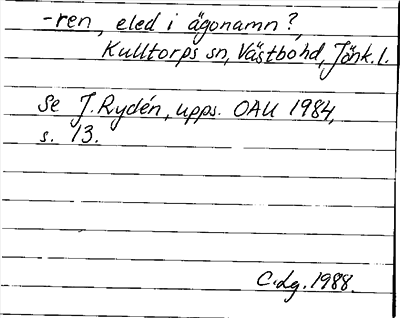 -ren, eled i ägonamn?,
Kulltorps sn, Västbo hd, Jönk. l.
Se J. Rydén, upps. OAU 1984,
s. 13.
C.Lg. 1988.